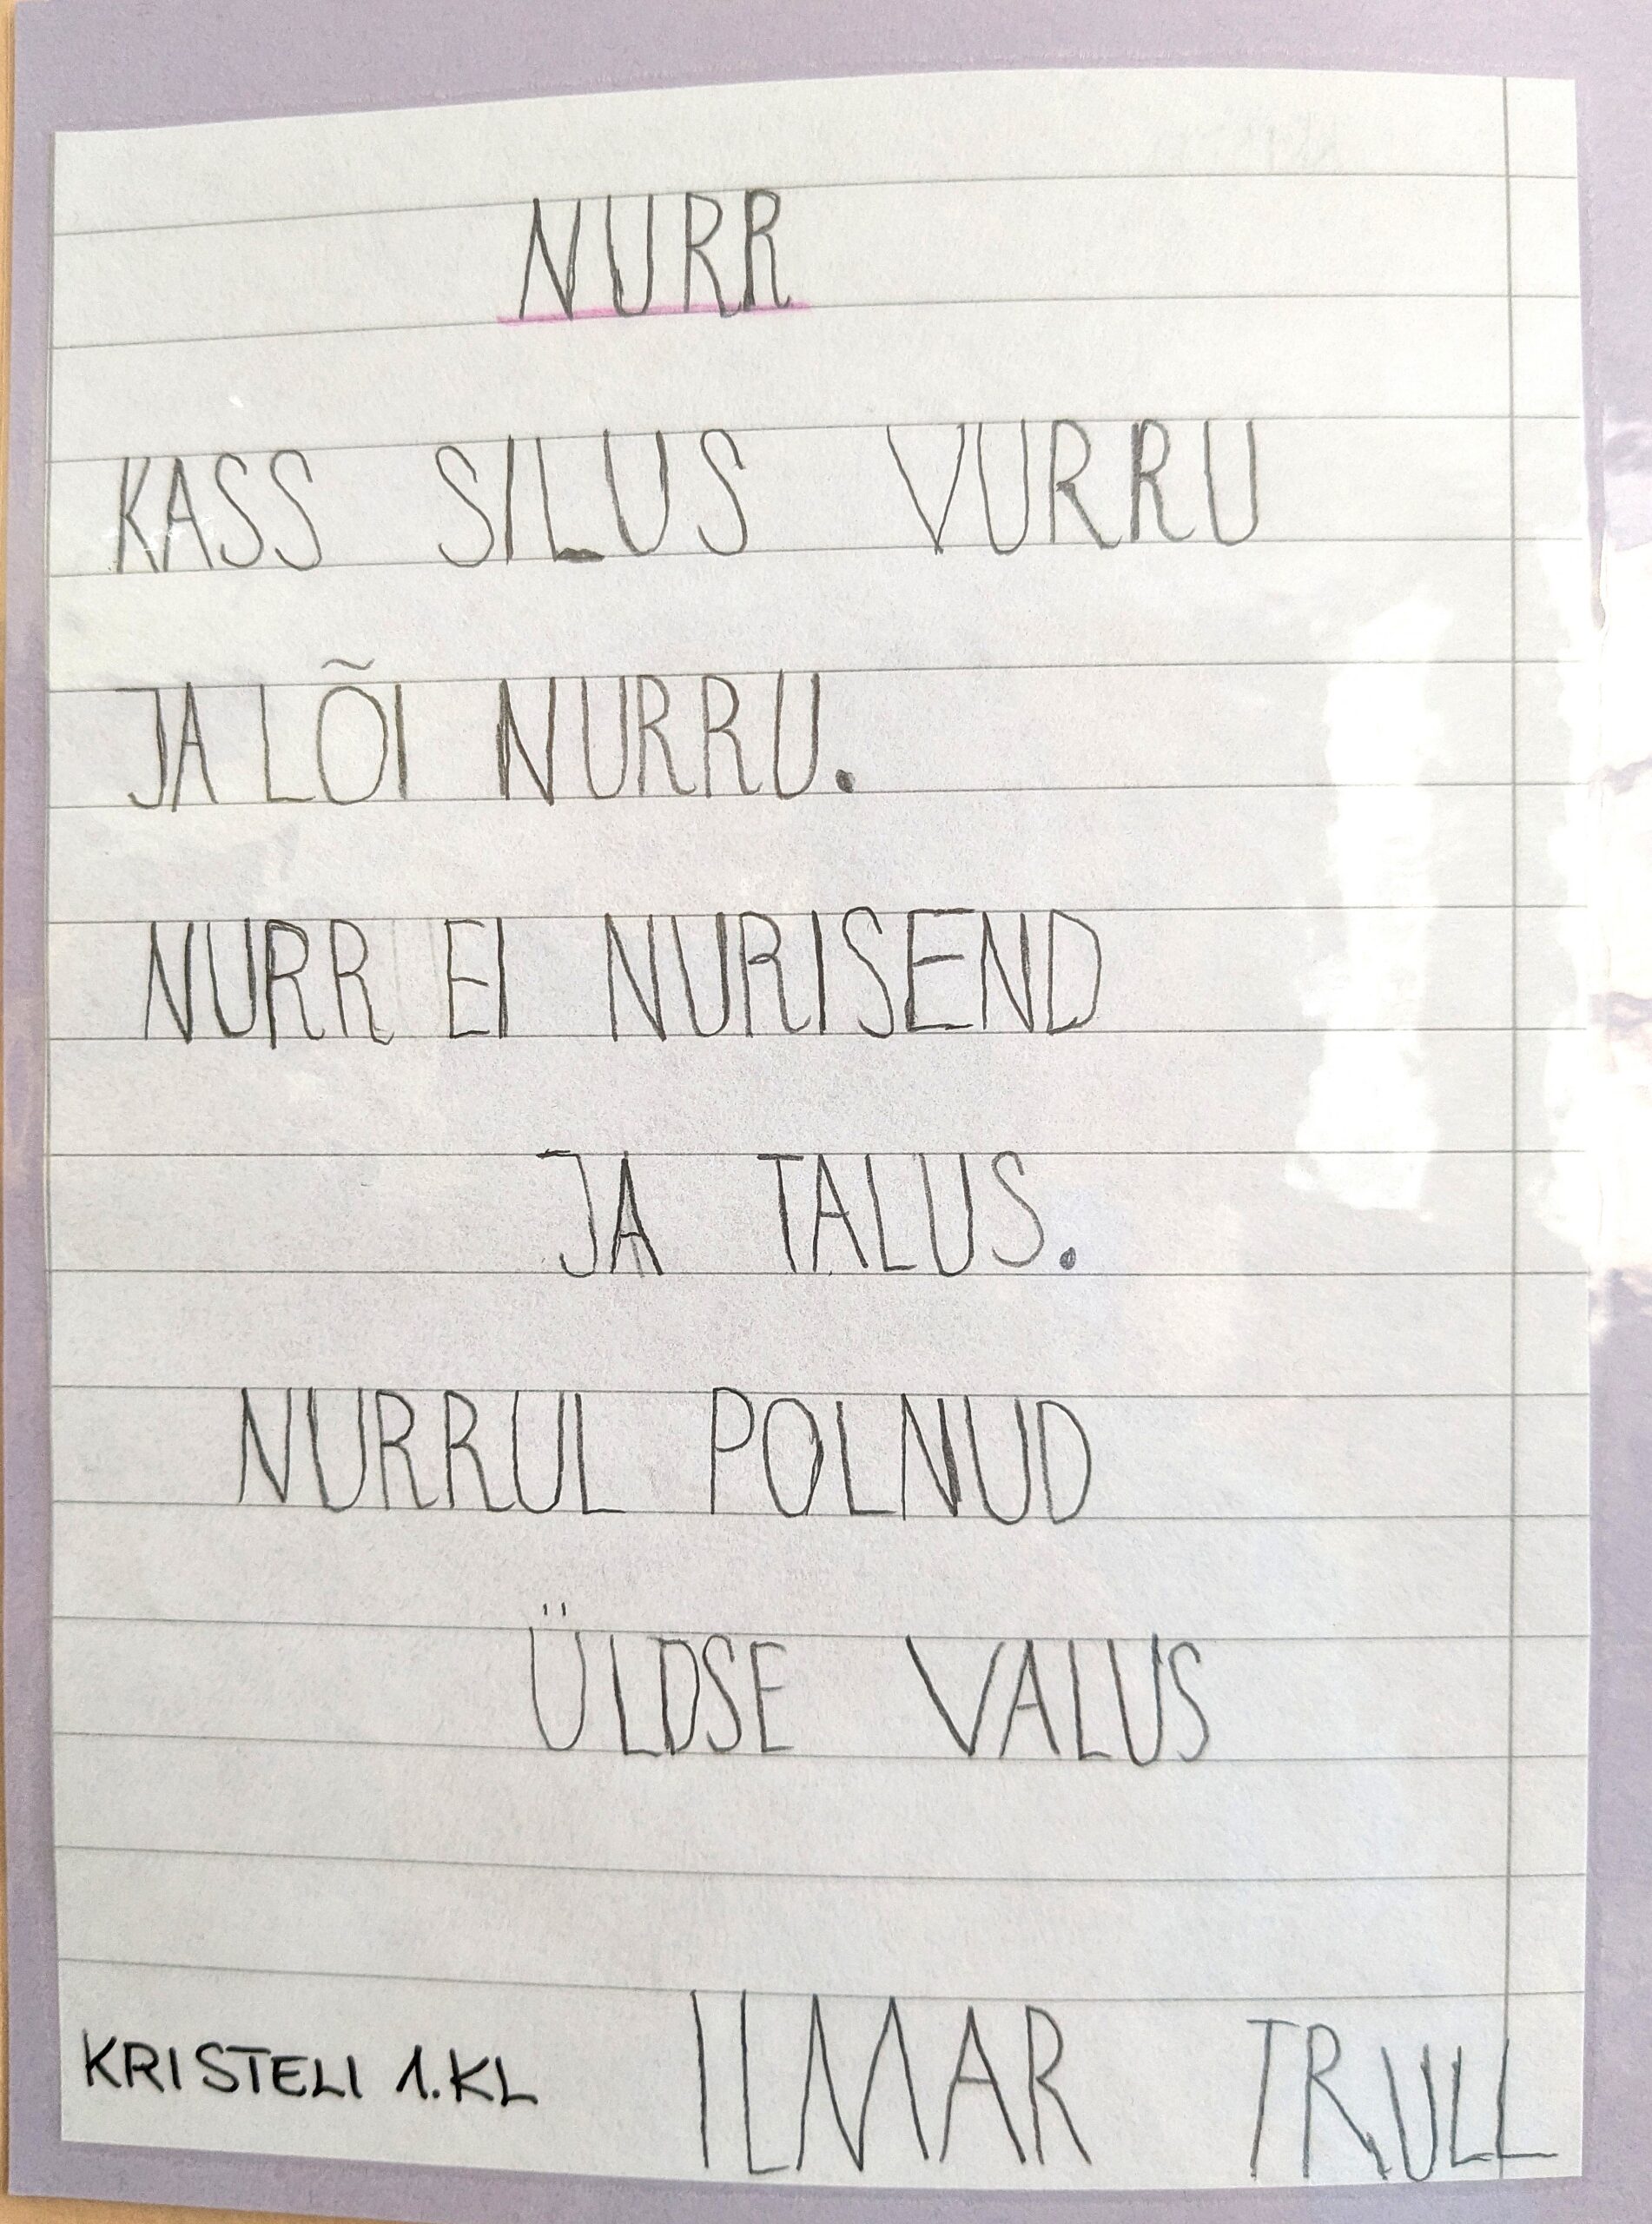 NURR
KASS SILUS VURRU
JA LÕI NURRU.
NURR EI NURISEND
JA TALUS.
NURRUL POLNUD
ÜLDSE VALUS
KRISTELI 1.KL ILMAR TRULL